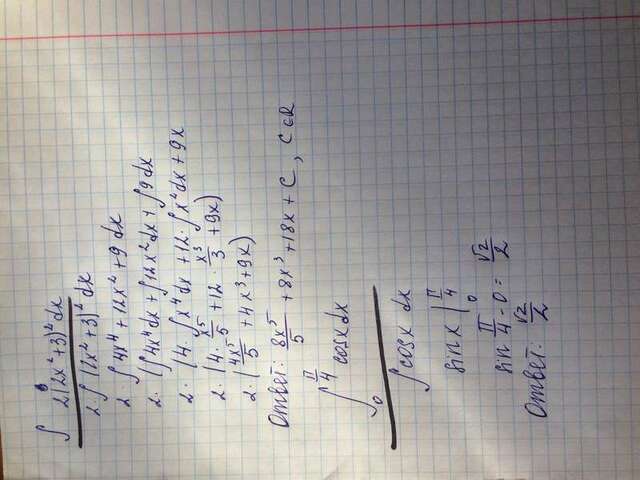 ∫ 2(2x²+3)² dx
2·∫(2x²+3)² dx
2·∫4x⁴+12x²+9 dx
2·(∫4x⁴dx+∫12x²dx+∫9dx
2·(4·∫x⁴dx+12·∫x²dx+9x
2·(4·x⁵/5+12·x³/3+9x)
2·(4x⁵/5+4x³+9x)
Ответ: 8x⁵/5+8x³+18x+C, C∈R
∫₀^(π/4) cosxdx
∫cosx dx
sinx|₀^(π/4)
sin π/4-0=√2/2
Ответ: √2/2